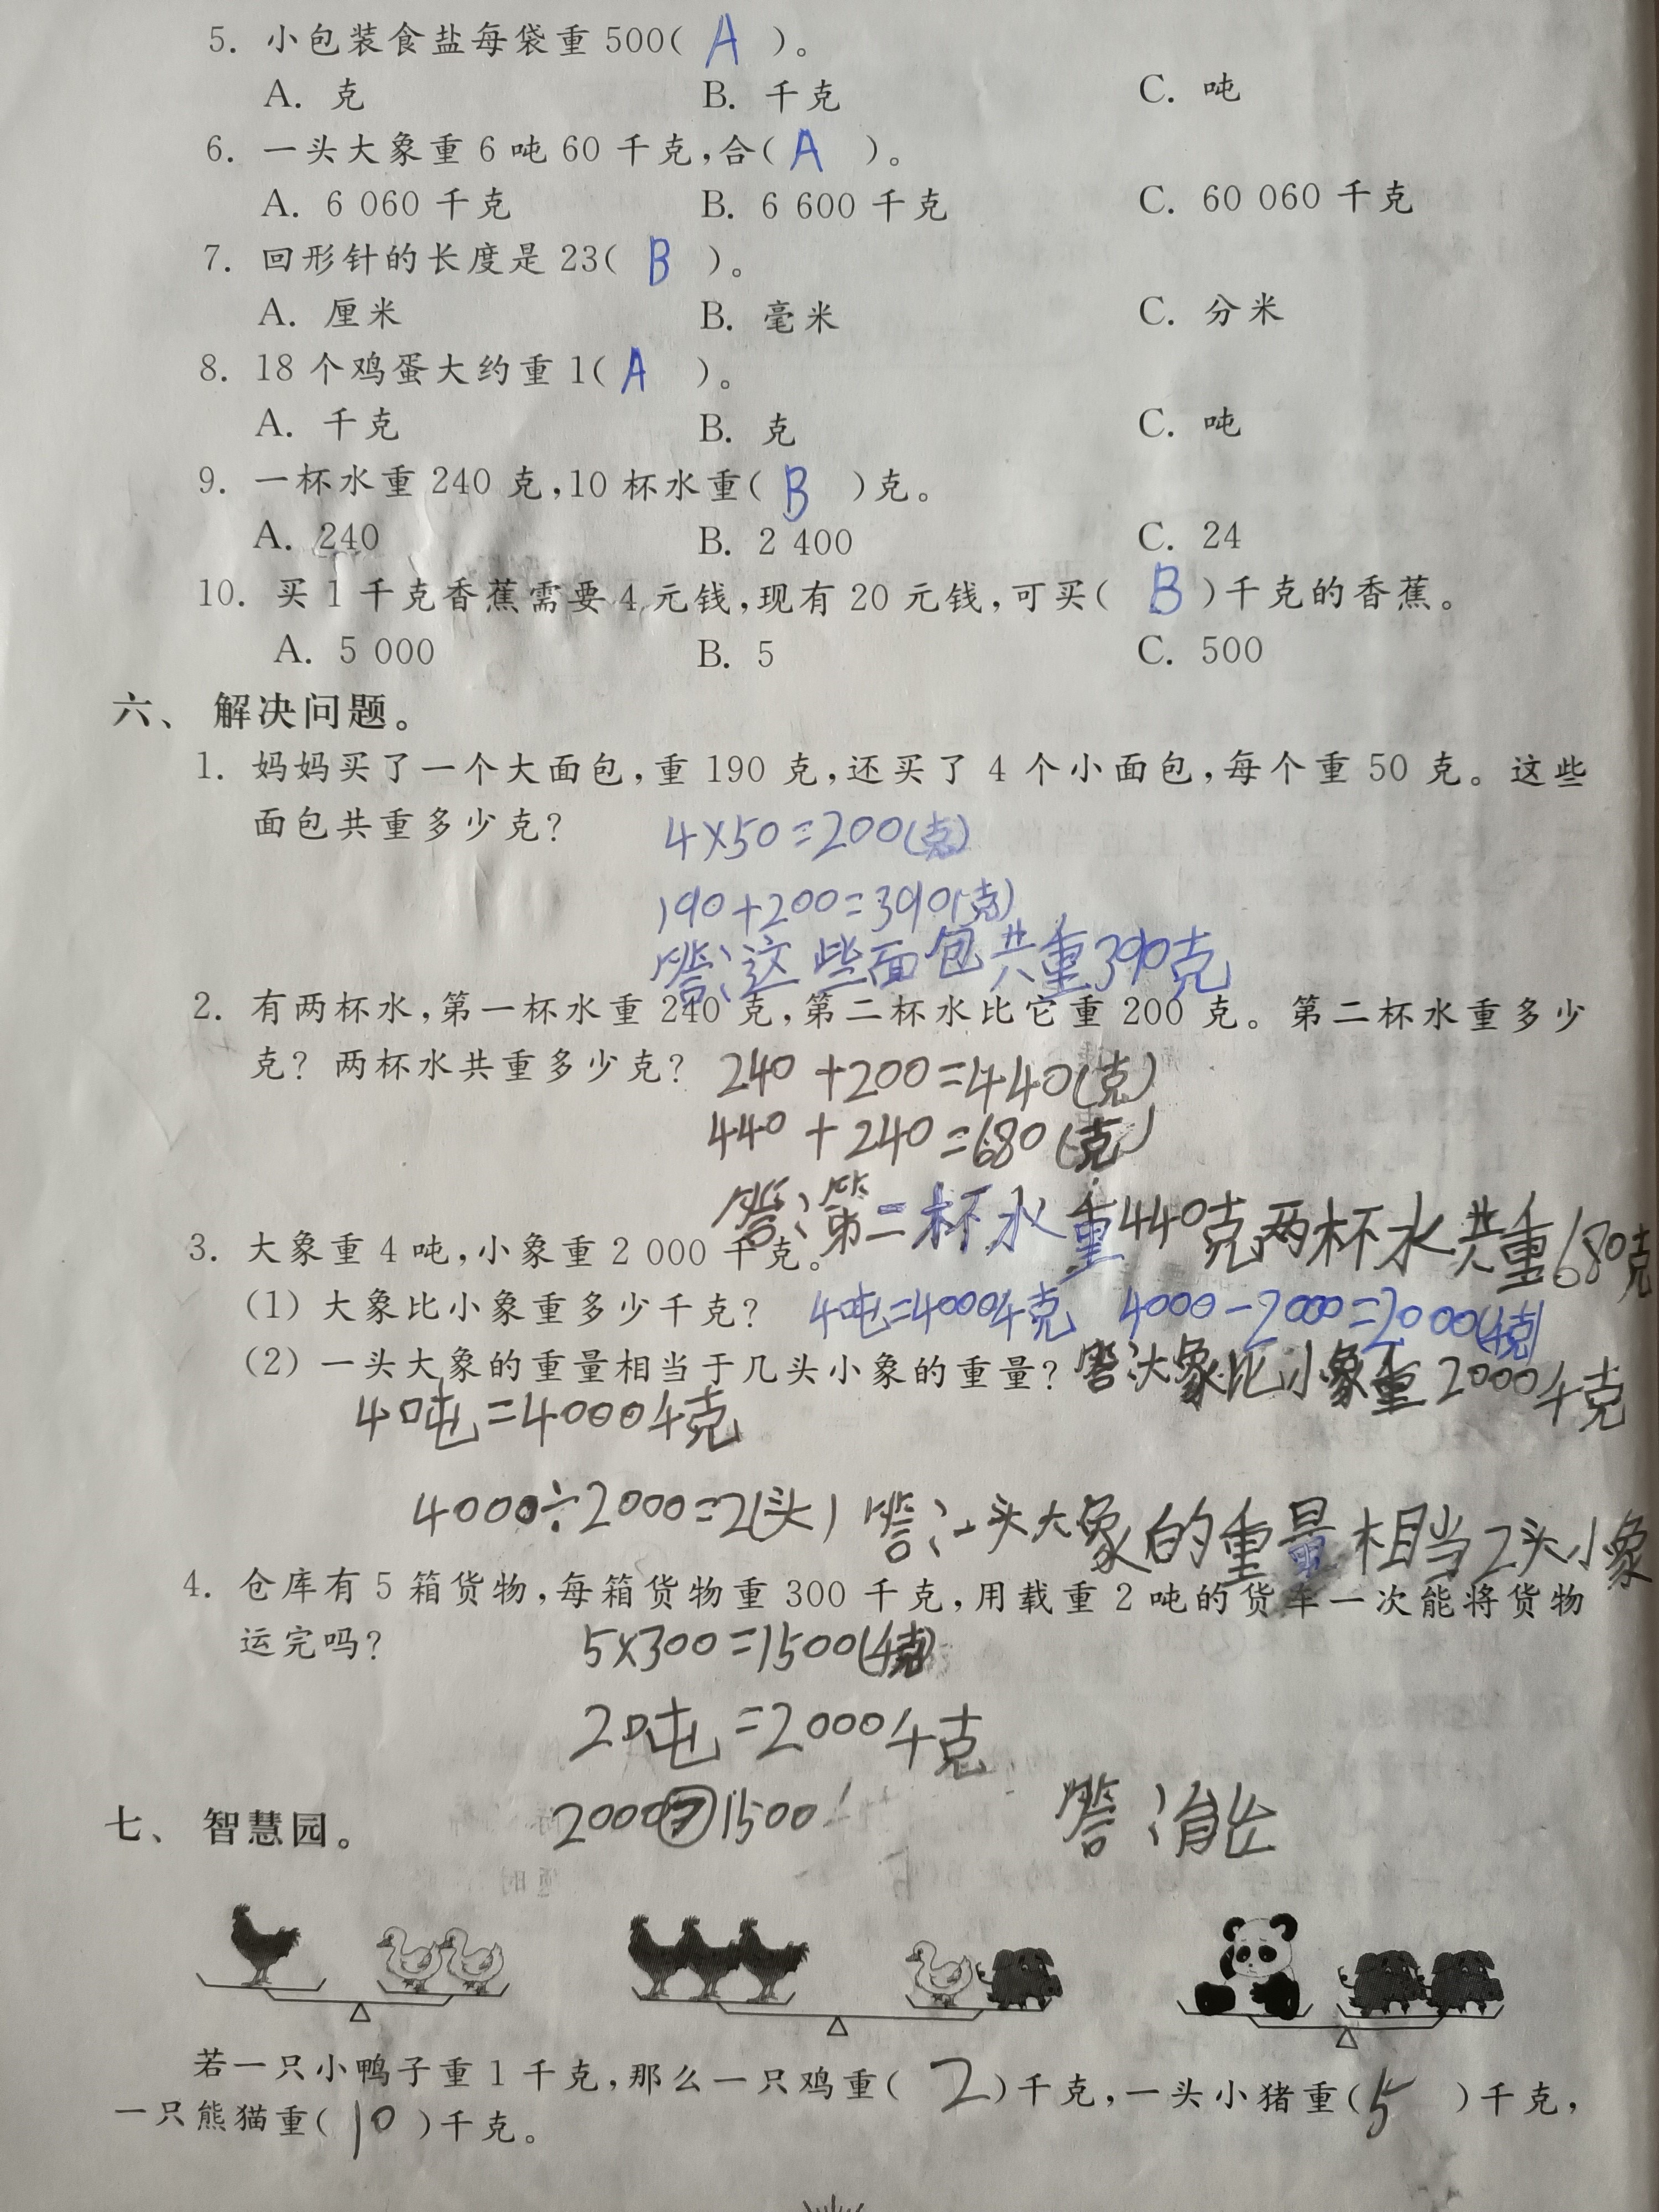 5. 小包装食盐每袋重 500( A )。
A. 克 B. 千克 C. 吨
6. 一头大象重 6 吨 60 千克,合( A )。
A. 6 060 千克 B. 6 600 千克 C. 60 060 千克
7. 回形针的长度是 23( B )。
A. 厘米 B. 毫米 C. 分米
8. 18 个鸡蛋大约重 1( A )。
A. 千克 B. 克 C. 吨
9. 一杯水重 240 克,10 杯水重( B )克。
A. 240 B. 2 400 C. 24
10. 买 1 千克香蕉需要 4 元钱,现有 20 元钱,可买( B )千克的香蕉。
A. 5 000 B. 5 C. 500
六、 解决问题。
1. 妈妈买了一个大面包,重 190 克,还买了 4 个小面包,每个重 50 克。这些
面包共重多少克?
4×50=200(克)
190+200=390(克)
答:这些面包共重390克
2. 有两杯水,第一杯水重 240 克,第二杯水比它重 200 克。第二杯水重多少
克? 两杯水共重多少克?
240+200=440(克)
440+240=680(克)
答:第二杯水重440克两杯水共重680克
3. 大象重 4 吨,小象重 2 000 千克。
(1) 大象比小象重多少千克? 4吨=4000千克 4000-2000=2000(千克)
(2) 一头大象的重量相当于几头小象的重量? 答:大象比小象重2000千克
4吨=4000千克
4000÷2000=2(头) 答:一头大象的重量相当2头小象
4. 仓库有 5 箱货物,每箱货物重 300 千克,用载重 2 吨的货车一次能将货物
运完吗?
5×300=1500(千克)
2吨=2000千克
2000>1500
答:能
七、 智慧园。
若一只小鸭子重 1 千克,那么一只鸡重( 2 )千克,一头小猪重( 5 )千克,
一只熊猫重( 10 )千克。